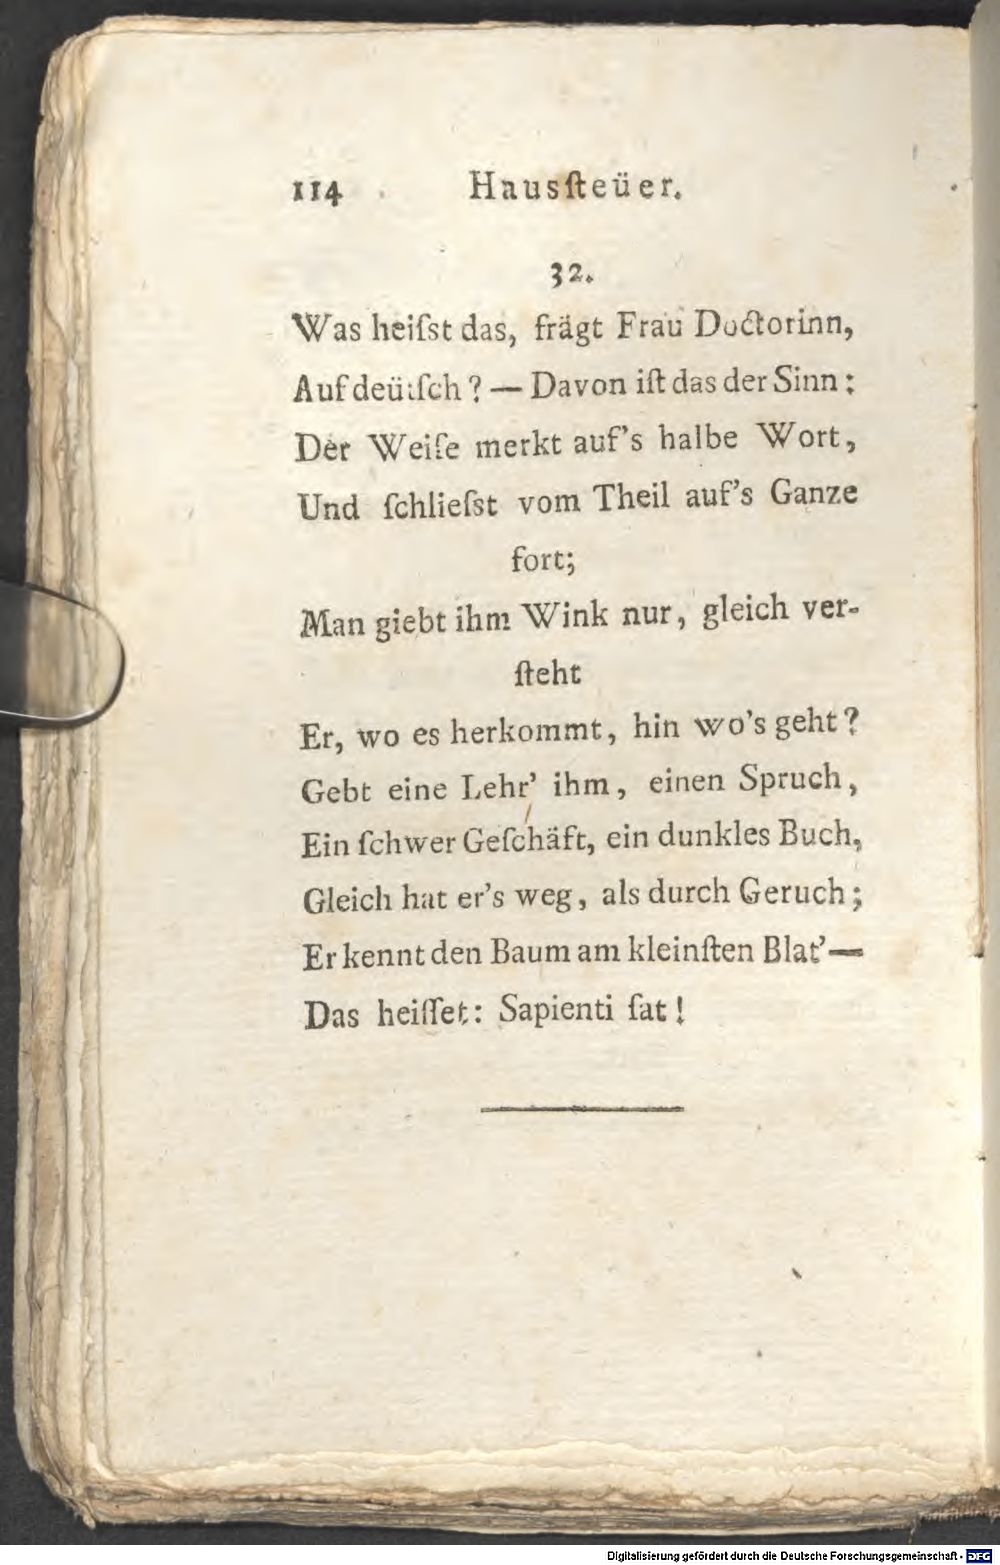 114 Hausſteüer.
32.
Was heiſst das, frägt Frau Doctorinn,
Auf deütſch? — Davon iſt das der Sinn:
Der Weiſe merkt auf's halbe Wort,
Und ſchlieſst vom Theil auf's Ganze
fort;
Man giebt ihm Wink nur, gleich ver-
ſteht
Er, wo es herkommt, hin wo's geht?
Gebt eine Lehr' ihm, einen Spruch,
Ein ſchwer Geſchäft, ein dunkles Buch,
Gleich hat er's weg, als durch Geruch;
Er kennt den Baum am kleinſten Blat'—
Das heiſſet: Sapienti ſat!
Digitalisierung gefördert durch die Deutsche Forschungsgemeinschaft - DFG